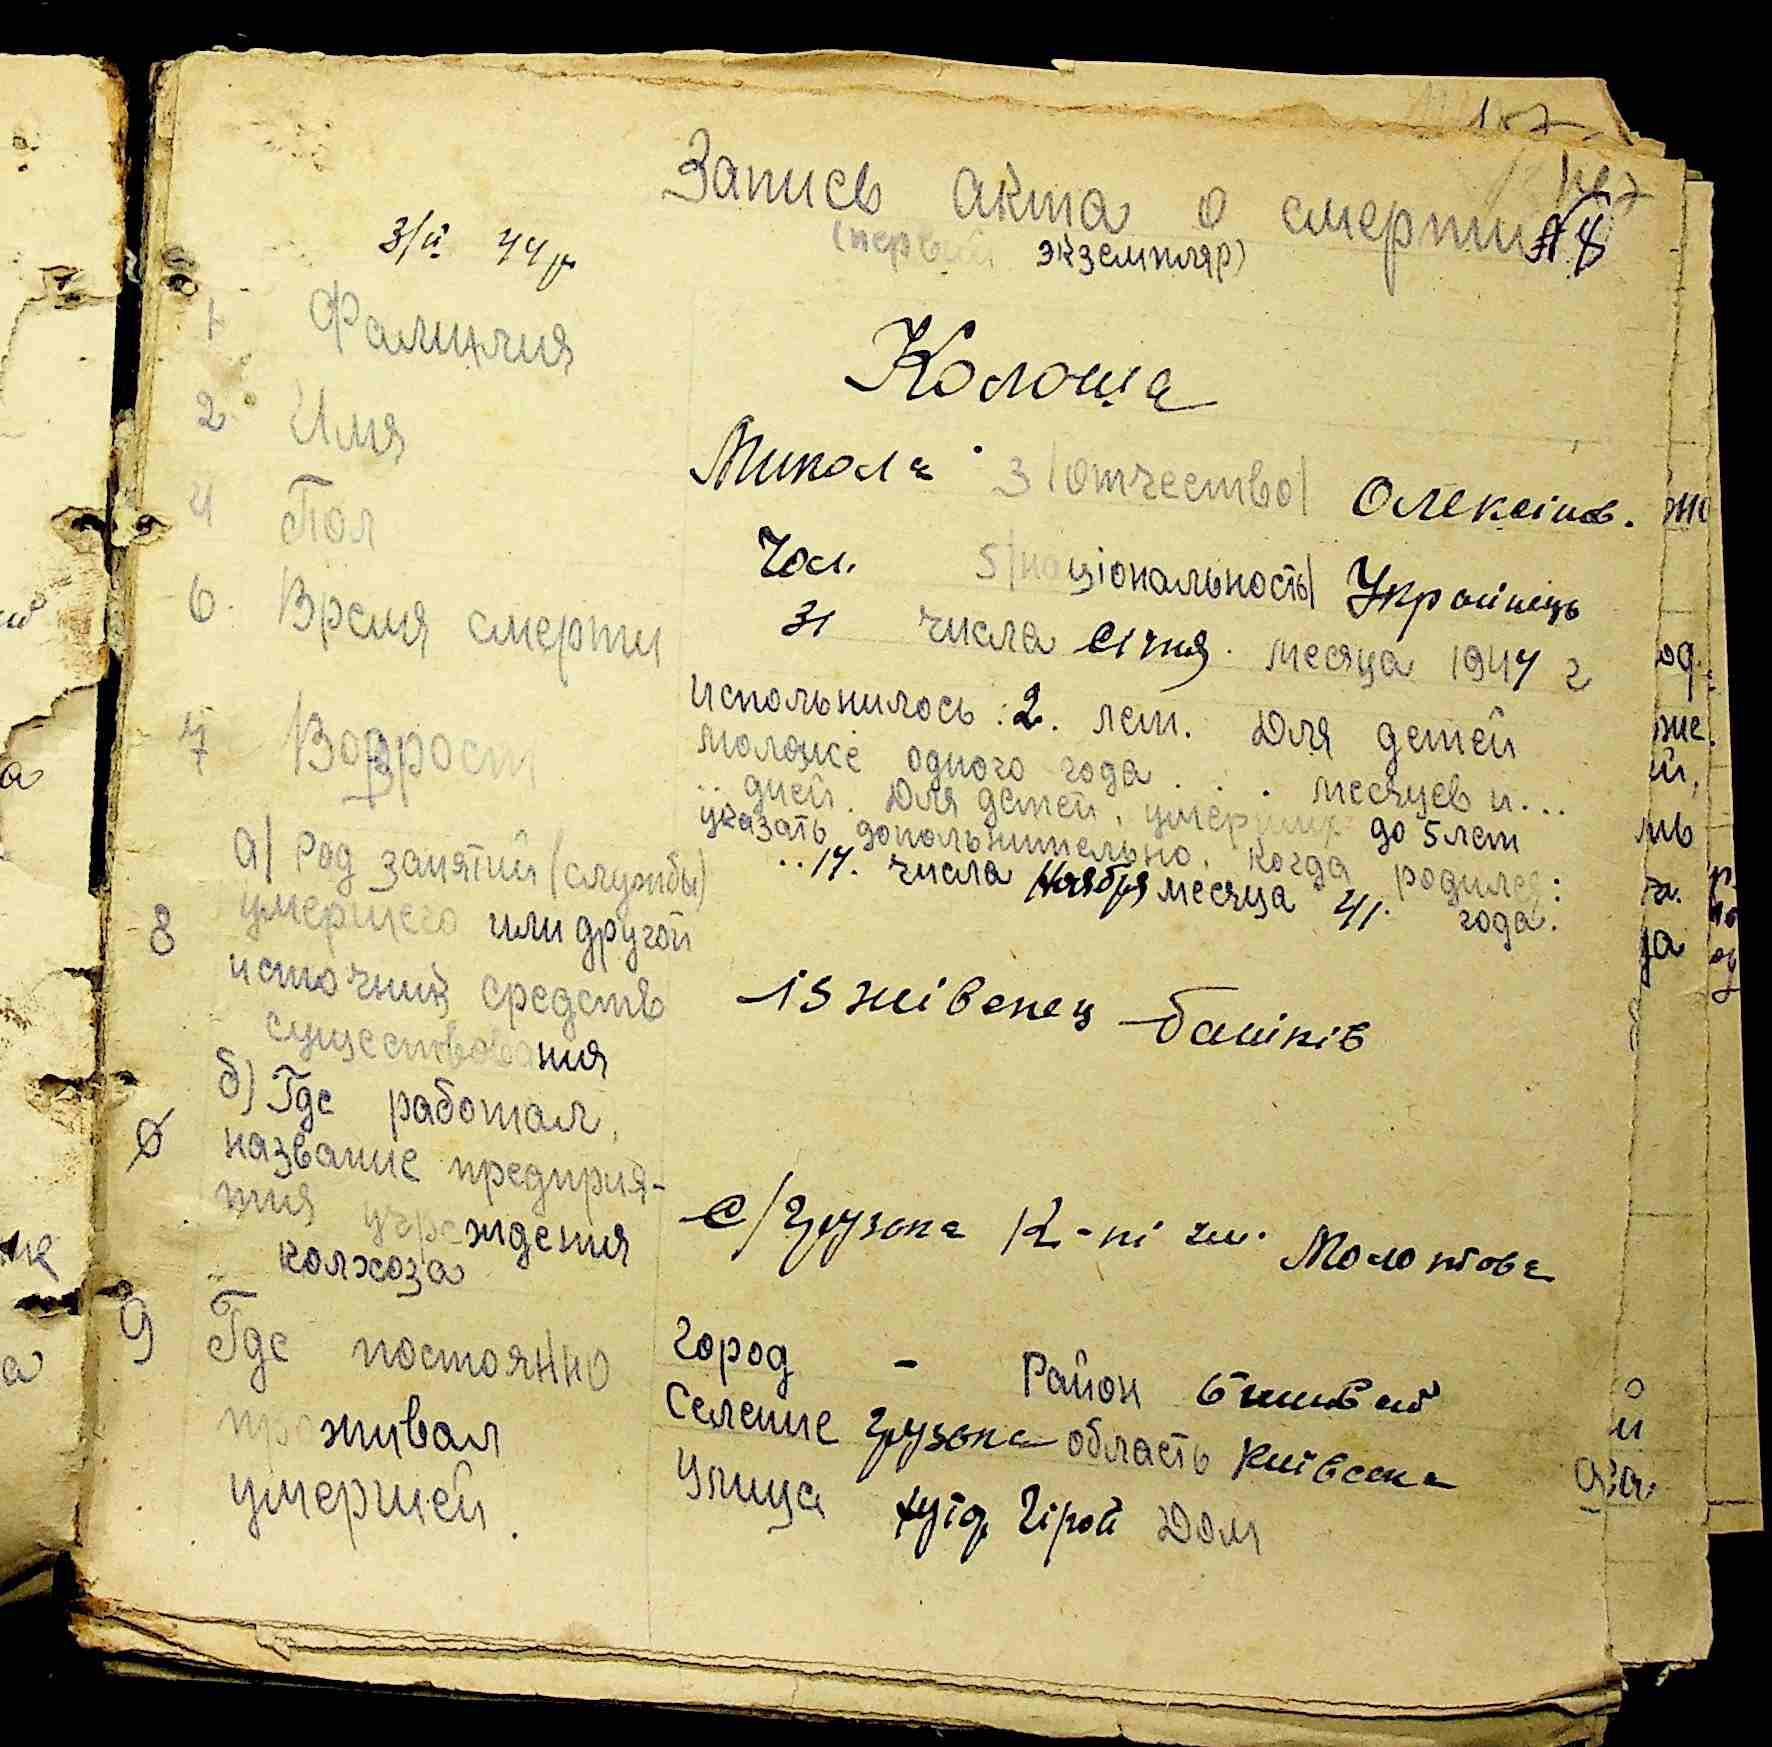 187
Запись акта о смерти № 8
3/ІІ 44 р
(первый экземпляр)
1 Фамилия Колоша
2 Имя Микола 3 (отчество) Олексійов.
4 Пол Чол. 5 (національность) Українець
6. Время смерти 31 числа січня. месяца 1944 г
7 Возраст испольнилось: 2. лет. Для детей
моложе одного года . . . месяцев и...
.. дней. Для детей, умерших до 5 лет
указать дополынительно, когда родился:
..14. числа Ноября месяца 41. года.
8 а) Род занятий (службы)
умершего или другой
источник средств
существования
ізжівенец батьків
б) Где работал,
название предприя-
тия учреждения
колхоза
с/Грузька К-п ім. Молотова
9 Где постоянно
проживал
умерший.
Город - Район
Селение Грузька область Київська
Улица Дом